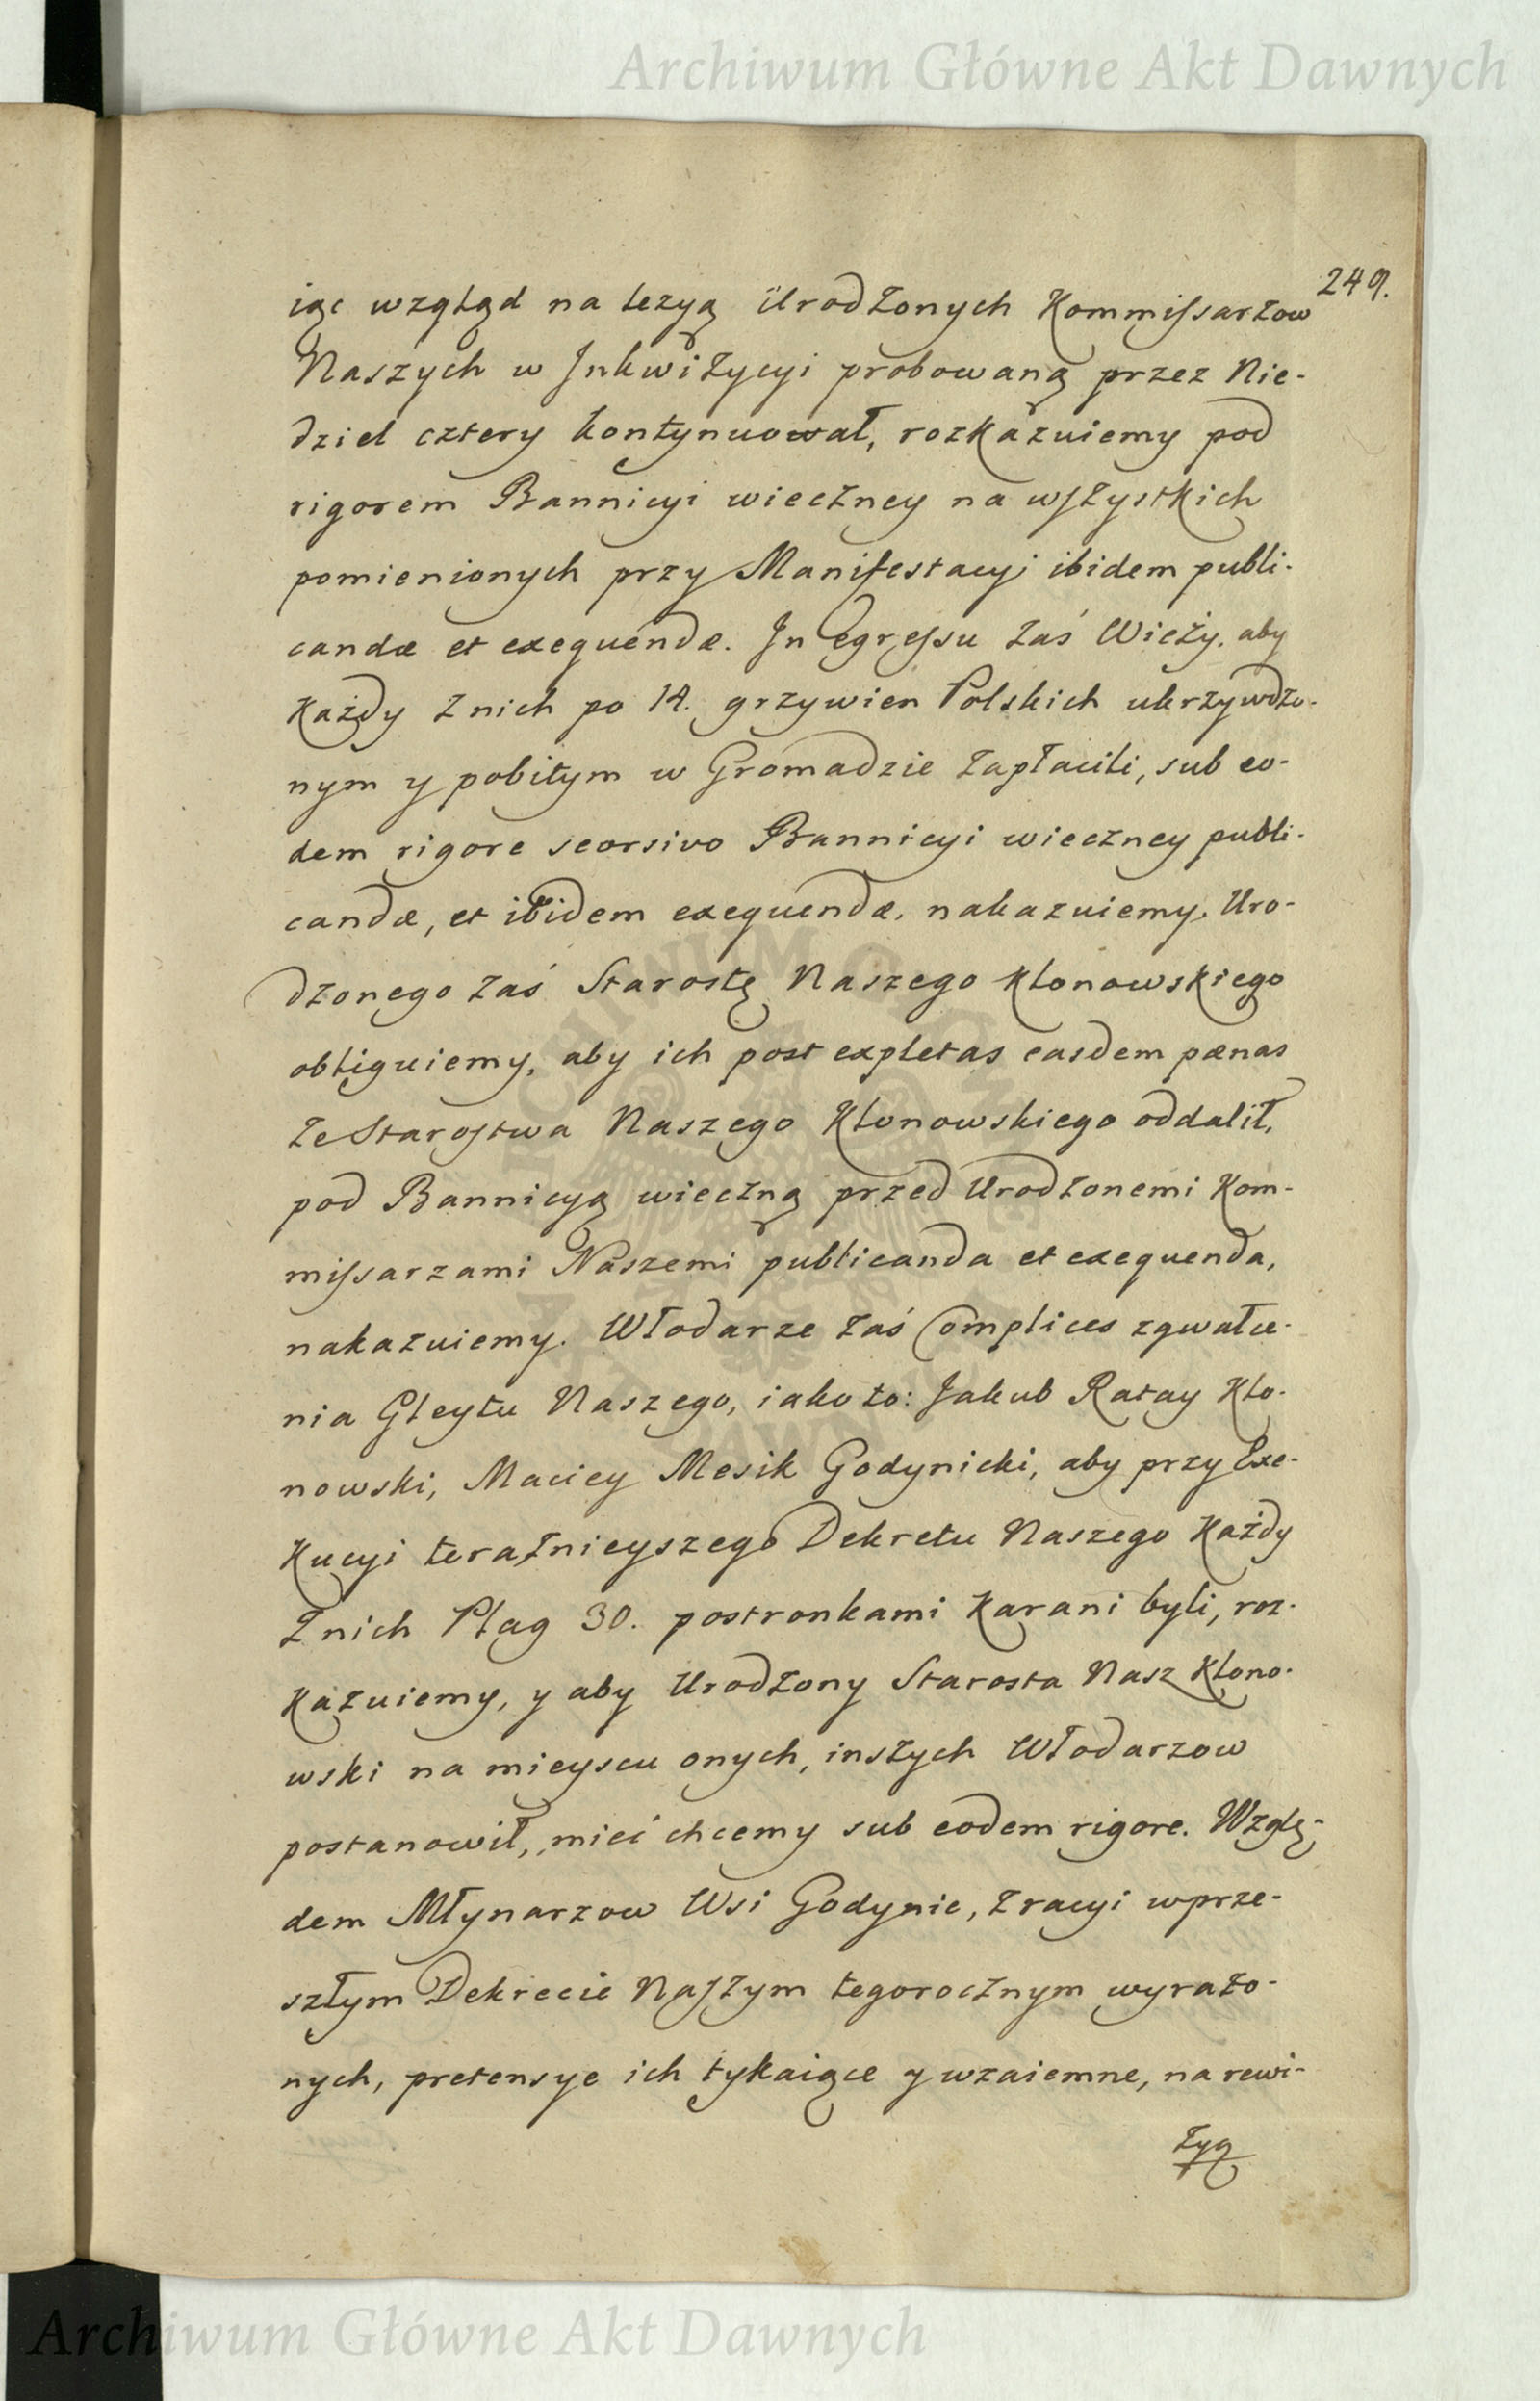 Archiwum Główne Akt Dawnych
249.
iąc wzgląd na lezyą Urodzonych Kommissarzow
Naszych w Inkwizycyi probowaną przez Nie-
dziel cztery kontynuował, rozkazuiemy pod
rigorem Bannicyi wieczney na wszystkich
pomienionych przy Manifestacyi ibidem publi-
candæ et exequendæ. In egressu zaś Wieży, aby
każdy z nich po 14. grzywien Polskich ukrzywdzo-
nym y pobitym w Gromadzie zapłacili, sub eo-
dem rigore seorsivo Bannicyi wieczney publi-
candæ, et ibidem exequendæ, nakazuiemy. Uro-
dzonego zaś Starostę Naszego Klonowskiego
obliguiemy, aby ich post expletas easdem pænas
ze Starostwa Naszego Klonowskiego oddalił,
pod Bannicyą wieczną przed Urodzonemi Kom-
missarzami Naszemi publicanda et exequenda,
nakazuiemy. Włodarze zaś Complices zgwałce-
nia Gleytu Naszego, iako to: Jakub Ratay Klo-
nowski, Maciey Mesik Godynicki, aby przy Exe-
kucyi teraznieyszego Dekretu Naszego każdy
z nich Plag 30. postronkami karani byli, roz-
kazuiemy, y aby Urodzony Starosta Nasz Klono-
wski na mieyscu onych, inszych Włodarzow
postanowił, mieć chcemy sub eodem rigore. Wzglę-
dem Młynarzow Wsi Godynic, z racyi w prze-
szłym Dekrecie Naszym tegorocznym wyrażo-
nych, pretensye ich tykaiące y wzaiemne, na rewi-
zyą
ARCHIWUM GŁÓWNE
AKT DAWNYCH
Archiwum Główne Akt Dawnych